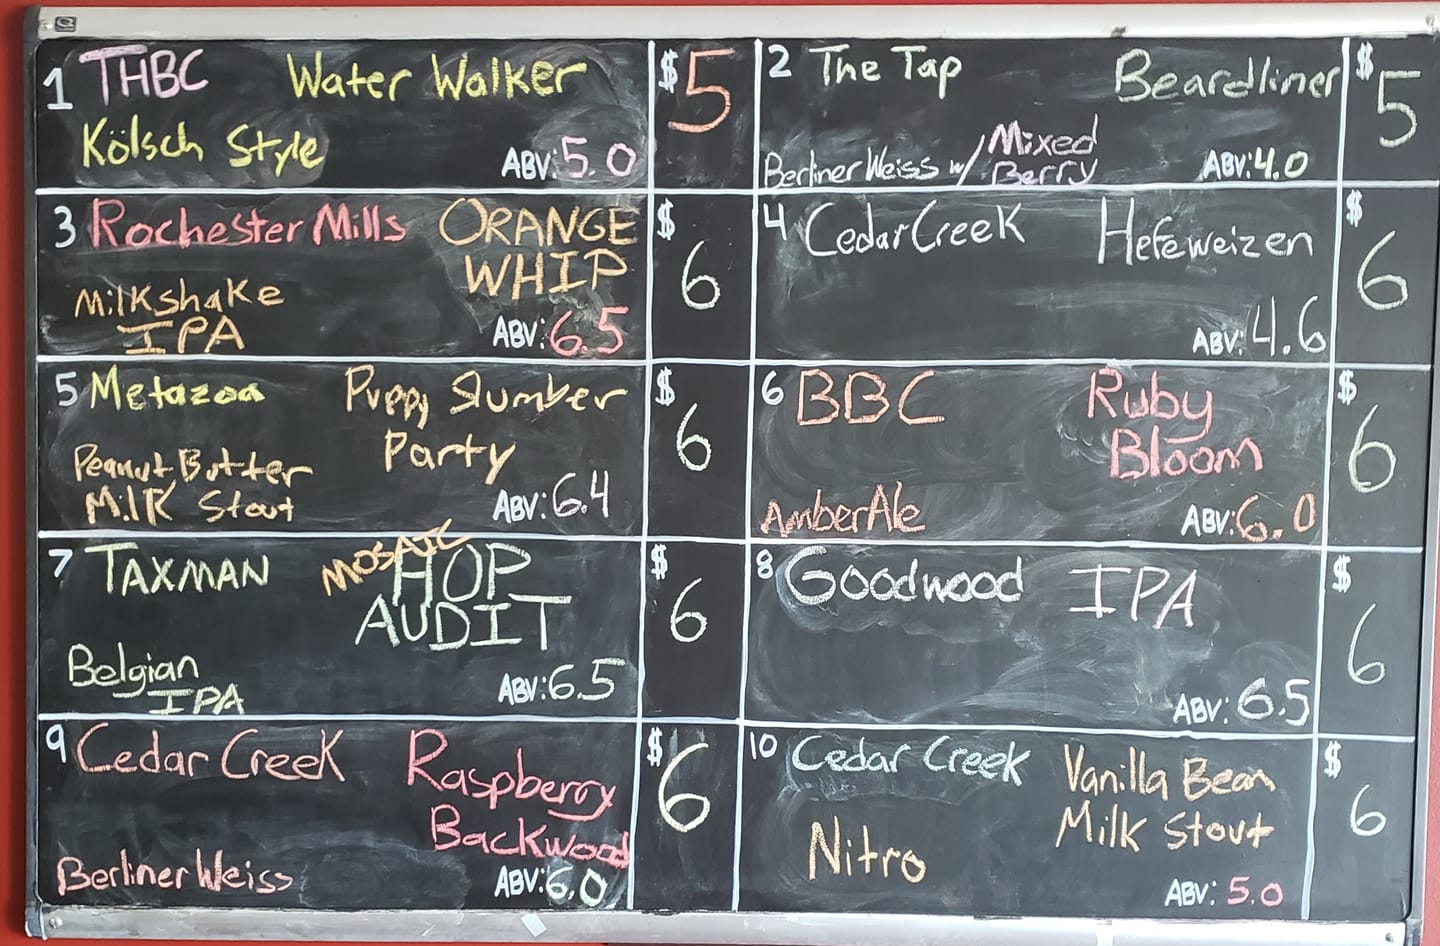 1 THBC Water Walker $5
Kölsch Style ABV: 5.0
2 The Tap Beardliner $5
Berliner Weiss w/ Mixed
Berry ABV: 4.0
3 Rochester Mills ORANGE $6
WHIP
Milkshake
IPA ABV: 6.5
4 Cedar Creek Hefeweizen $6
ABV: 4.6
5 Metazoa Puppy Slumber $6
Party
Peanut Butter
Milk Stout ABV: 6.4
6 BBC Ruby $6
Bloom
Amber Ale ABV: 6.0
7 TAXMAN MOSAIC HOP $6
AUDIT
Belgian
IPA ABV: 6.5
8 Goodwood IPA $6
ABV: 6.5
9 Cedar Creek Raspberry $6
Backwood
Berliner Weiss ABV: 6.0
10 Cedar Creek Vanilla Bean $6
Milk Stout
Nitro
ABV: 5.0